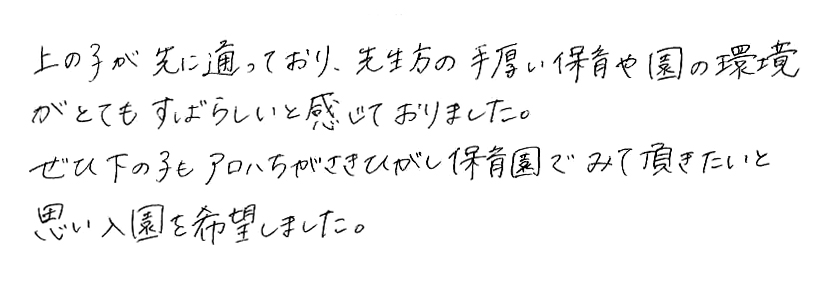 上の子が先に通っており、先生方の手厚い保育や園の環境
がとてもすばらしいと感じておりました。
ぜひ下の子もアロハちがさきひがし保育園でみて頂きたいと
思い入園を希望しました。